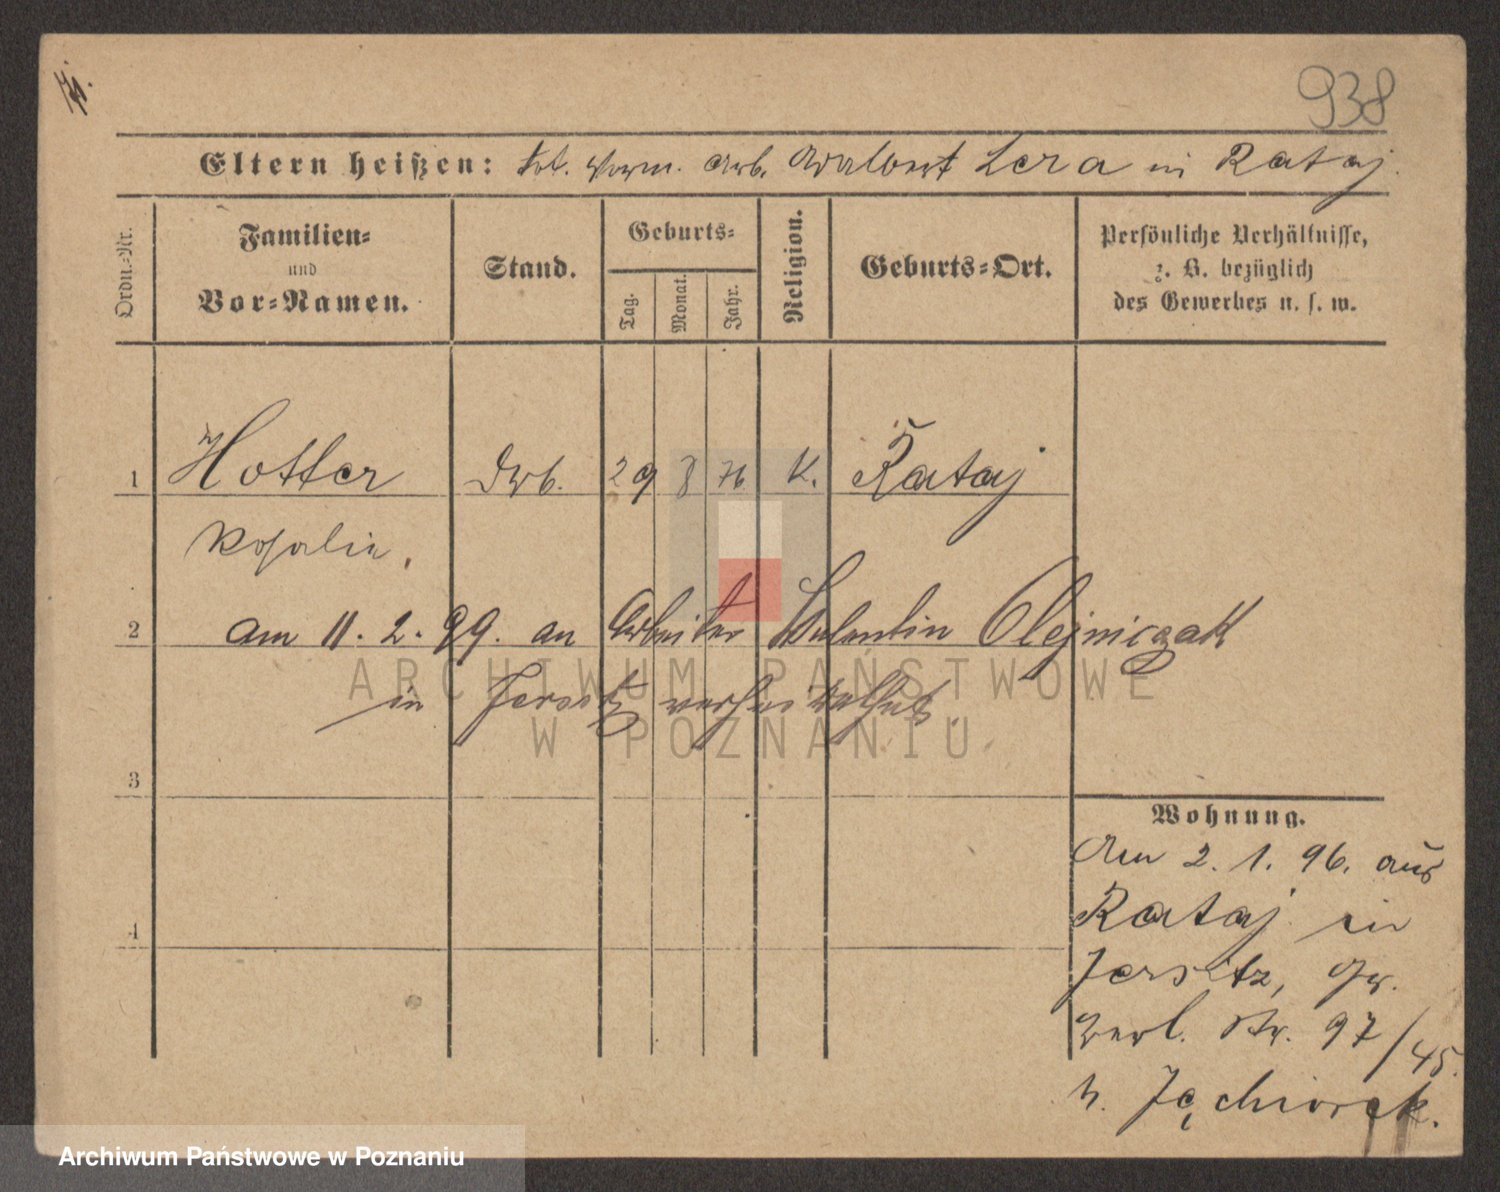 938
Eltern heißen: Arb. Lera in Rataj.
Ordn.-Nr.
Familien-
und
Vor-Namen.
Stand.
Geburts-
Tag.
Monat.
Jahr.
Religion.
Geburts-Ort.
Persönliche Verhältnisse,
z. B. bezüglich
des Gewerbes u. s. w.
1 Hotter Arb. 29 8 76 K. Rataj
Rosalie.
2 am 11. 2. 99. an Arbeiter Valentin Olejniczak
in Jersitz verheirathet.
3
Wohnung.
Am 2. 1. 96. aus
4 Rataj in
Jersitz, Gr.
Berl. Str. 97/45.
b. Jęchiorek.
ARCHIWUM PAŃSTWOWE
W POZNANIU
Archiwum Państwowe w Poznaniu